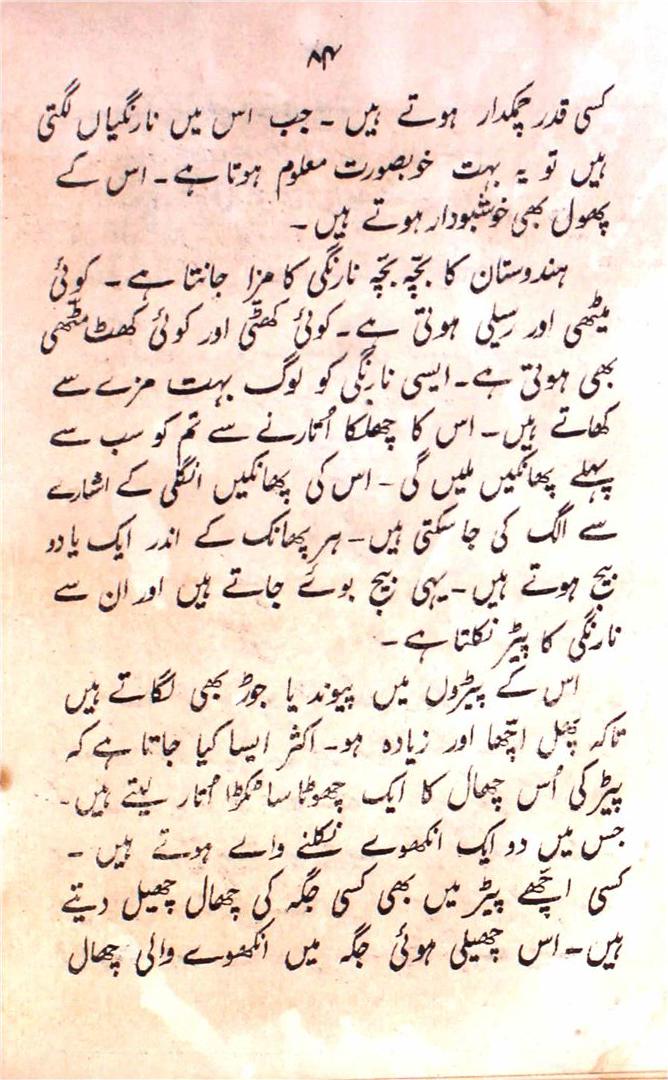 ۸۴
کسی قدر چمکدار ہوتے ہیں ۔ جب اس میں نارنگیاں لگتی
ہیں تو یہ بہت خوبصورت معلوم ہوتا ہے ۔ اس کے
پھول بھی خوشبودار ہوتے ہیں ۔
ہندوستان کا بچّہ بچّہ نارنگی کا مزا جانتا ہے ۔ کوئی
میٹھی اور رسیلی ہوتی ہے ۔ کوئی کھٹّی اور کوئی کھٹ مٹّھی
بھی ہوتی ہے ۔ ایسی نارنگی کو لوگ بہت مزے سے
کھاتے ہیں ۔ اس کا چھلکا اُتارنے سے تم کو سب سے
پہلے پھانکیں ملیں گی ۔ اس کی پھانکیں انگلی کے اشارے
سے الگ کی جا سکتی ہیں ۔ ہر پھانک کے اندر ایک یا دو
بیج ہوتے ہیں ۔ یہی بیج بوئے جاتے ہیں اور ان سے
نارنگی کا پیڑ نکلتا ہے ۔
اس کے پیڑوں میں پیوند یا جوڑ بھی لگاتے ہیں
تاکہ پھل اچّھا اور زیادہ ہو ۔ اکثر ایسا کیا جاتا ہے کہ
پیڑ کی اُس چھال کا ایک چھوٹا سا ٹکڑا اُتار لیتے ہیں ۔
جس میں دو ایک انکھوے نکلنے والے ہوتے ہیں ۔
کسی اچّھے پیڑ میں بھی کسی جگہ کی چھال چھیل دیتے
ہیں ۔ اس چھیلی ہوئی جگہ میں انکھوے والی چھال